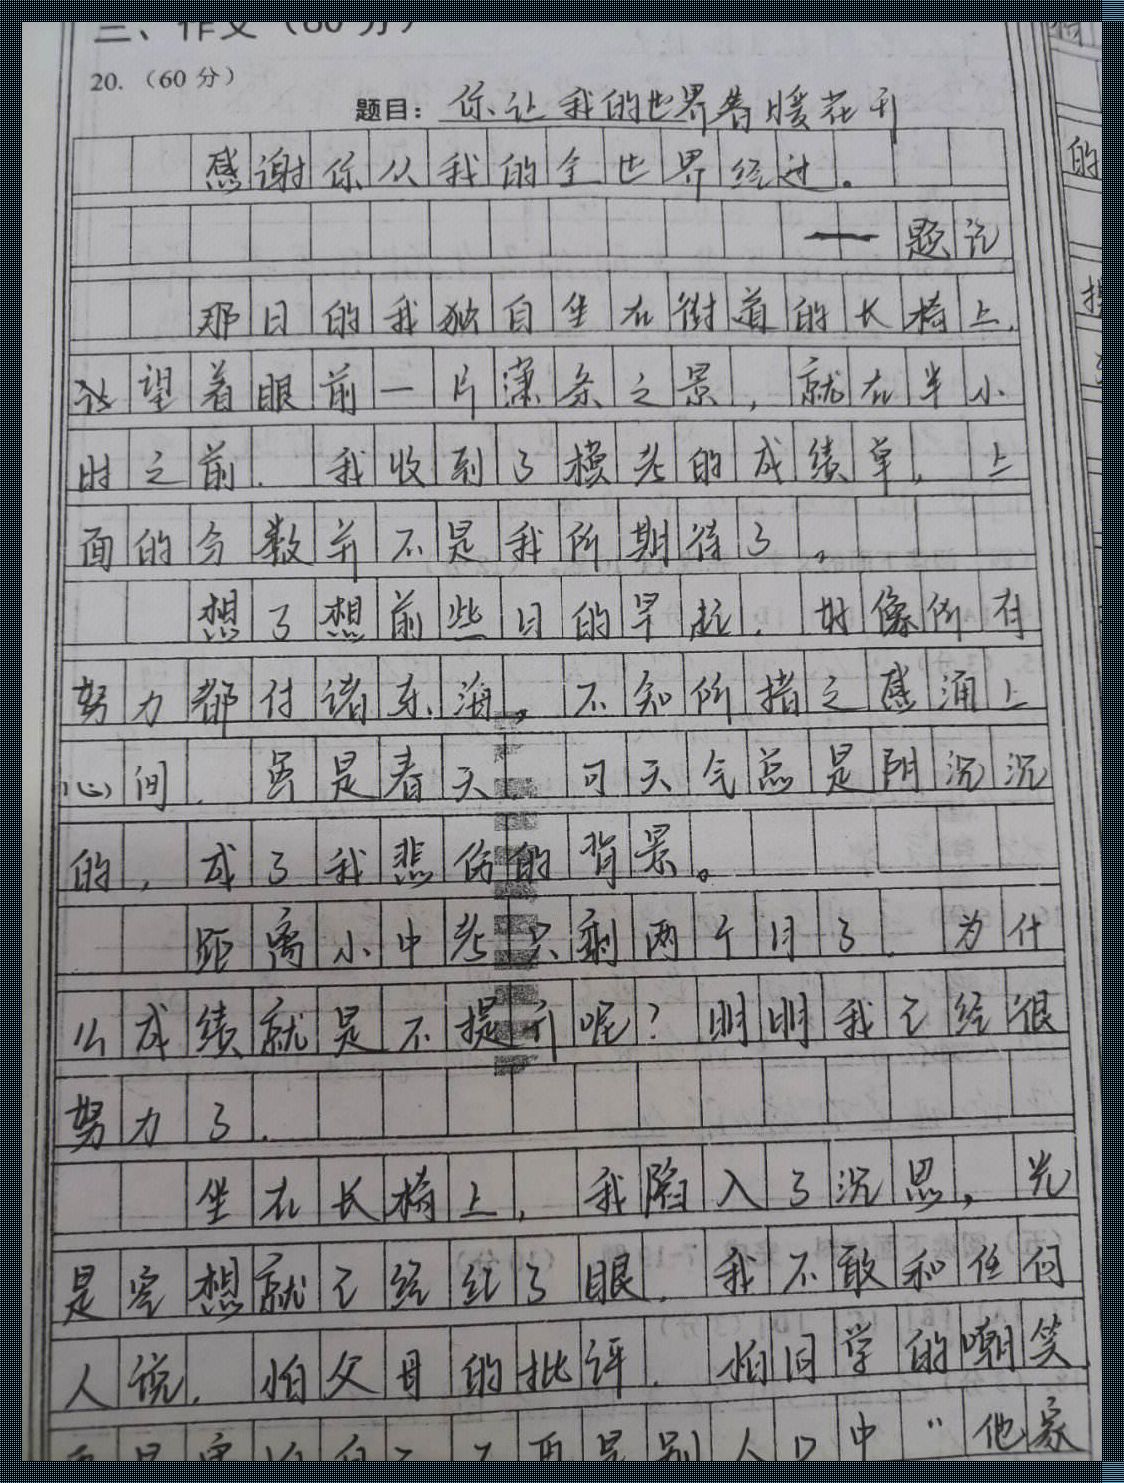 三、作文（60 分）
20.（60 分）
题目：你让我的世界春暖花开
感谢你从我的全世界经过。
——题记
那日的我独自坐在街道的长椅上，
望着眼前一片潇条之景，就在半小
时之前，我收到了模考的成绩单，上
面的分数并不是我所期待了。
想了想前些日的早起，好像所有
努力都付诸东海，不知所措之感涌上
心间，虽是春天，可天气总是阴沉沉
的，成了我悲伤的背景。
距离小中考只剩两个月了，为什
么成绩就是不提升呢？明明我已经很
努力了。
坐在长椅上，我陷入了沉思，光
是空想就已经红了眼，我不敢和任何
人说，怕父母的批评，怕同学的嘲笑
别人口中“他家